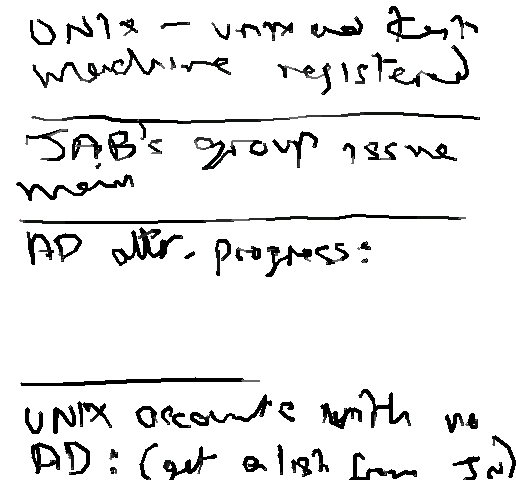 UNIX - unix and test
machine registered
JAB's group issue
main
AD attr. progress:
UNIX accounts with no
AD: (get a list from JN)